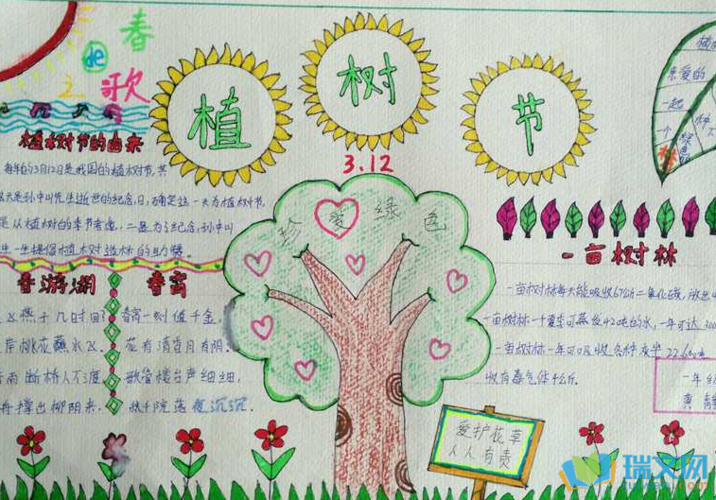 春
de
歌
植 树 节
3.12
植树节的由来
每年的3月12日是我国的植树节,其
天是孙中山先生逝世的纪念日,确定这一天为植树节
是从植树的季节考虑,二是为了纪念孙中山
生一生提倡植树造林的功绩
春游湖
飞燕子几时回
岸桃花蘸水
断桥人不度
舟撑出柳阴来
春宵
春宵一刻值千金
花有清香月有阴
歌管楼台声细细
秋千院落夜沉沉
珍爱绿色
爱护花草
人人有责
亲爱的
一起
一个
绿色
一亩树林
一亩树林每天能吸收67公斤二氧化碳,
一亩树林一个夏季可蒸发42吨的水,一年可达
一亩树林一年可以吸收各种
吸有毒气体4公斤.
一年
瑞文网